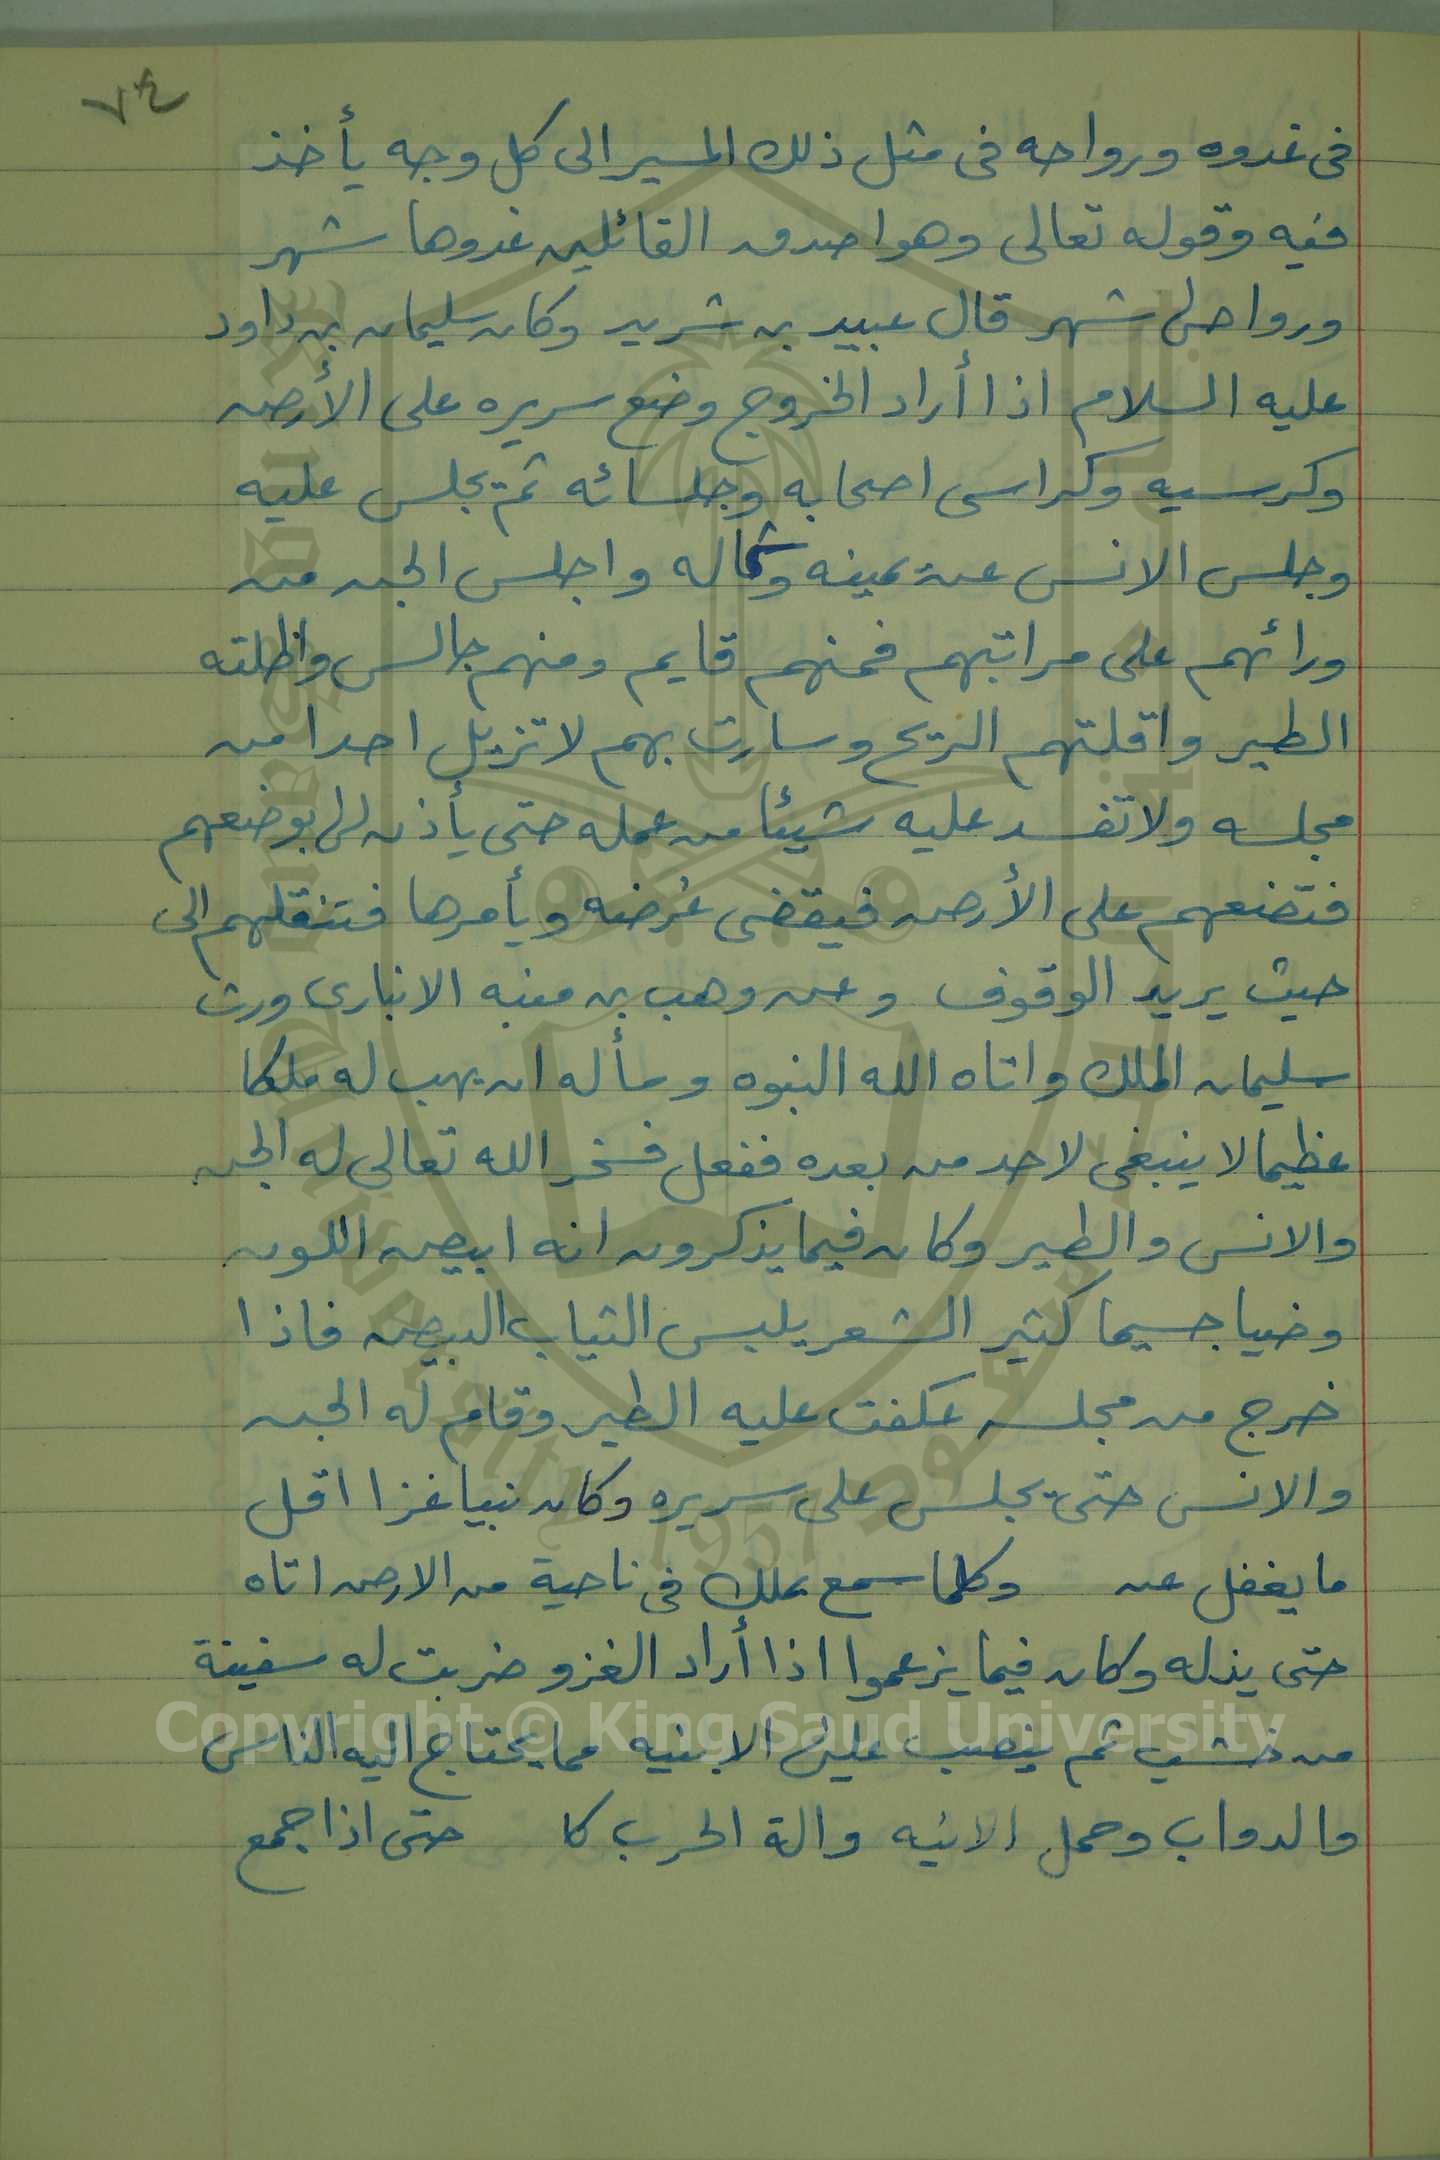 ٧٤
فى غدوه ورواحه فى مثل ذلك المسير الى كل وجه يأخذ
فيه وقوله تعالى وهو اصدق القائلين غدوها شهر
ورواحها شهر قال عبيد بن شريد وكان سليمان بن داود
عليه السلام اذا أراد الخروج وضع سريره على الأرض
وكرسيه وكراسى اصحابه وجلسائه ثم يجلس عليه
وجلس الانس عن يمينه وشماله واجلس الجن من
ورائهم على مراتبهم فمنهم قايم ومنهم جالس واظلته
الطير واقلتهم الريح وسارت بهم لا تزيل احدا من
مجلسه ولا تفسد عليه شيئا من عمله حتى يأذن لها بوضعهم
فتضعهم على الأرض فيقضى غرضه ويأمرها فتنقلهم الى
حيث يريد الوقوف وعن وهب بن منبه الانبارى ورث
سليمان الملك واتاه الله النبوه وسأله ان يهب له ملكا
عظيما لا ينبغى لاحد من بعده ففعل فسخر الله تعالى له الجن
والانس والطير وكان فيما يذكرون انه ابيض اللون
وضيا جسيما كثير الشعر يلبس الثياب البيض فاذا
خرج من مجلسه عكفت عليه الطير وقام له الجن
والانس حتى يجلس على سريره وكان نبيا غزا اقل
ما يغفل عن وكلما سمع بملك فى ناحية من الارض اتاه
حتى يذله وكان فيما يزعموا اذا أراد الغزو ضربت له سفينة
من خشب ثم ينصب عليها الابنيه مما يحتاج اليه الناس
والدواب وحمل الانيه والة الحرب كا حتى اذا جمع
Copyright © King Saud University
King Saud University
جامعة الملك سعود
1957